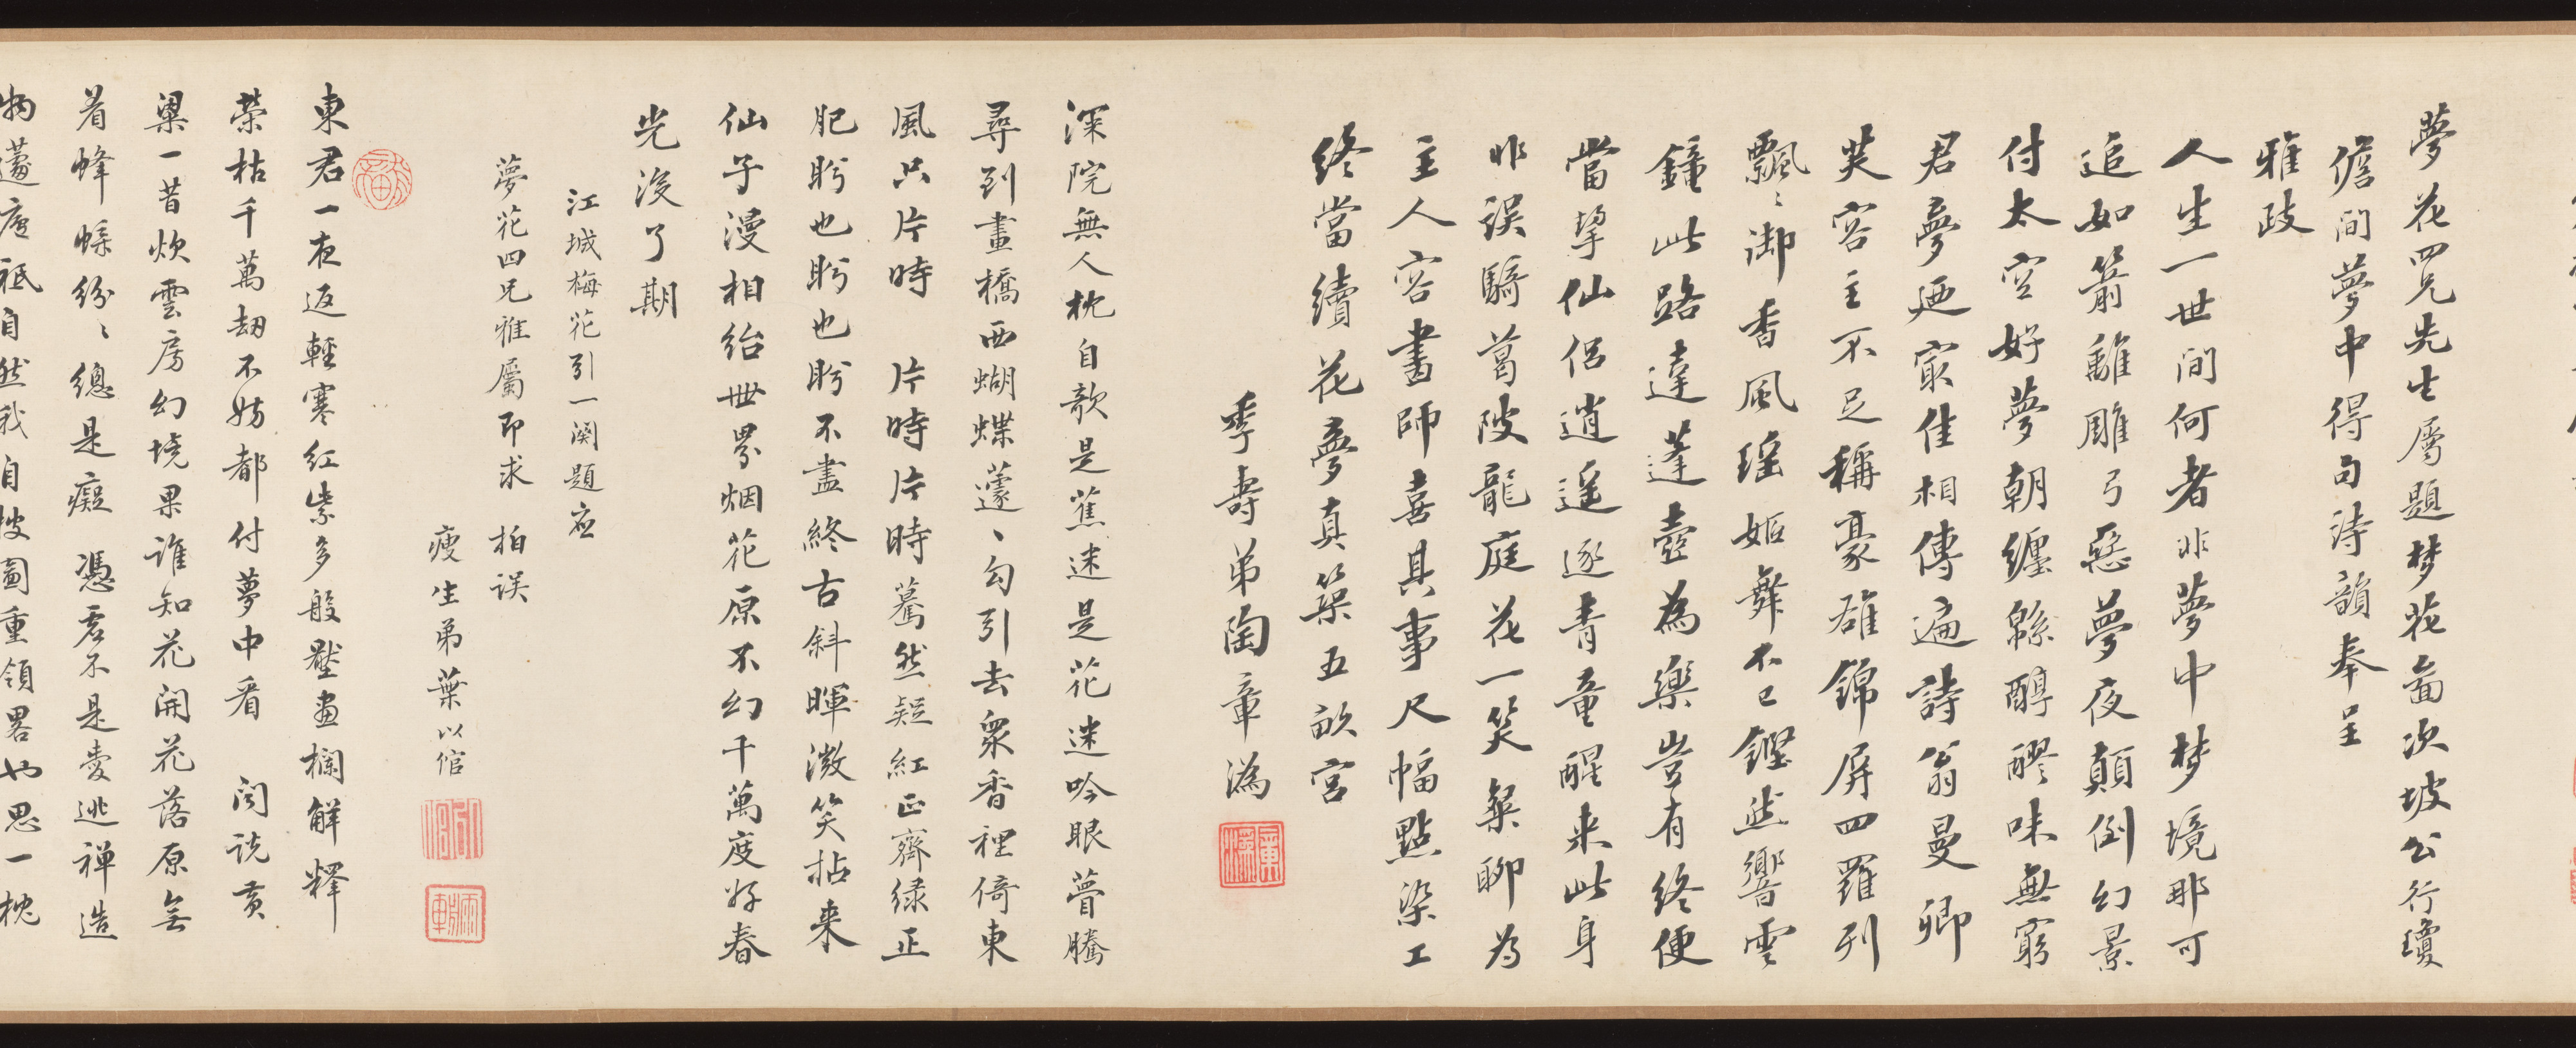 夢花四兄先生屬題梦花畐次坡公行瓊
儋間夢中得句詩韻奉呈
雅政
人生一世间何者非夢中梦境那可
追如箭離雕弓惡夢夜顛倒幻景
付太空好夢朝纏緜醇醪味無窮
君夢迺寂佳相傳遍詩翁曼卿
芙容主不足稱豪雄錦屏四羅列
飄〻御香風瑶姬舞不已鏗然響雲
鐘此路達蓬壺為樂豈有終便
當挈仙侣逍遥逐青童醒来此身
非误騎葛陂龍庭花一笑粲聊为
主人容畫師喜具事尺幅點染工
终當續花夢真築五畝宮
季壽弟陶章溈
深院無人枕自欹是蕉迷是花迷吟眼瞢騰
尋到畫橋西蝴蝶蘧〻勾引去衆香裡倚東
風只片時 片時片時驀然疑紅正齊绿正
肥盻也盻也盻不盡終古斜暉微笑拈来
仙子漫相紿世界烟花原不幻千萬度好春
光没了期
江城梅花引一闋題应
夢花四兄雅屬即求 拍误
瘦生弟葉以倌
東君一夜返輕寒紅紫多般壓畫欄解釋
榮枯千萬劫不妨都付夢中看 闻説黄
粱一昔炊雲房幻境果誰知花開花落原無
着蜂蝶纷〻總是癡 憑君不是爱逃禅造
物蘧廬祇自然我自披圖重領畧也思一枕